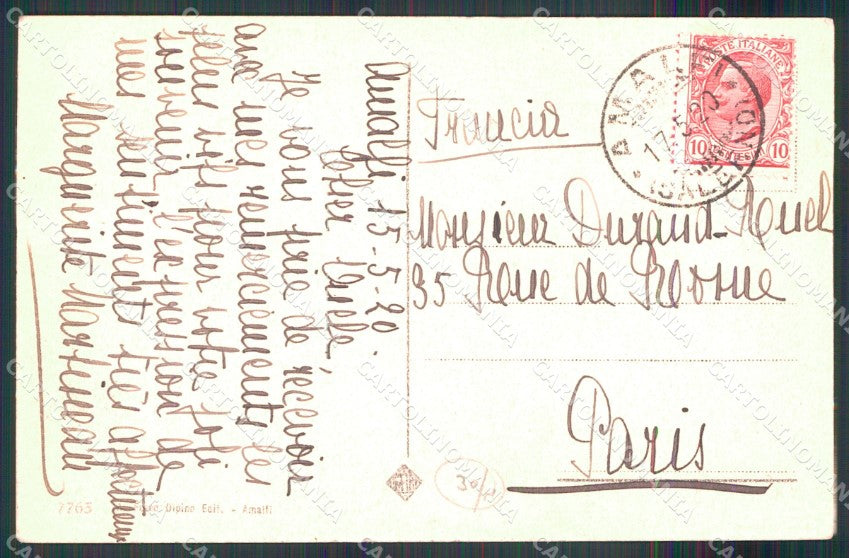 Amalfi 15-5-20.
Cher Oncle,
Je vous prie de recevoir
avec mes remerciements les
plus vifs pour votre joli
souvenir l'expression de
mes sentiments très affectueux
Marguerite Martineau
Francia
Monsieur Durand-Ruel
35 Rue de Rome
Paris
AMALFI
17.5.20
(SALERNO)
POSTE ITALIANE
10 10
7763 Dipino Edit. - Amalfi
CARTOLINOMANIA